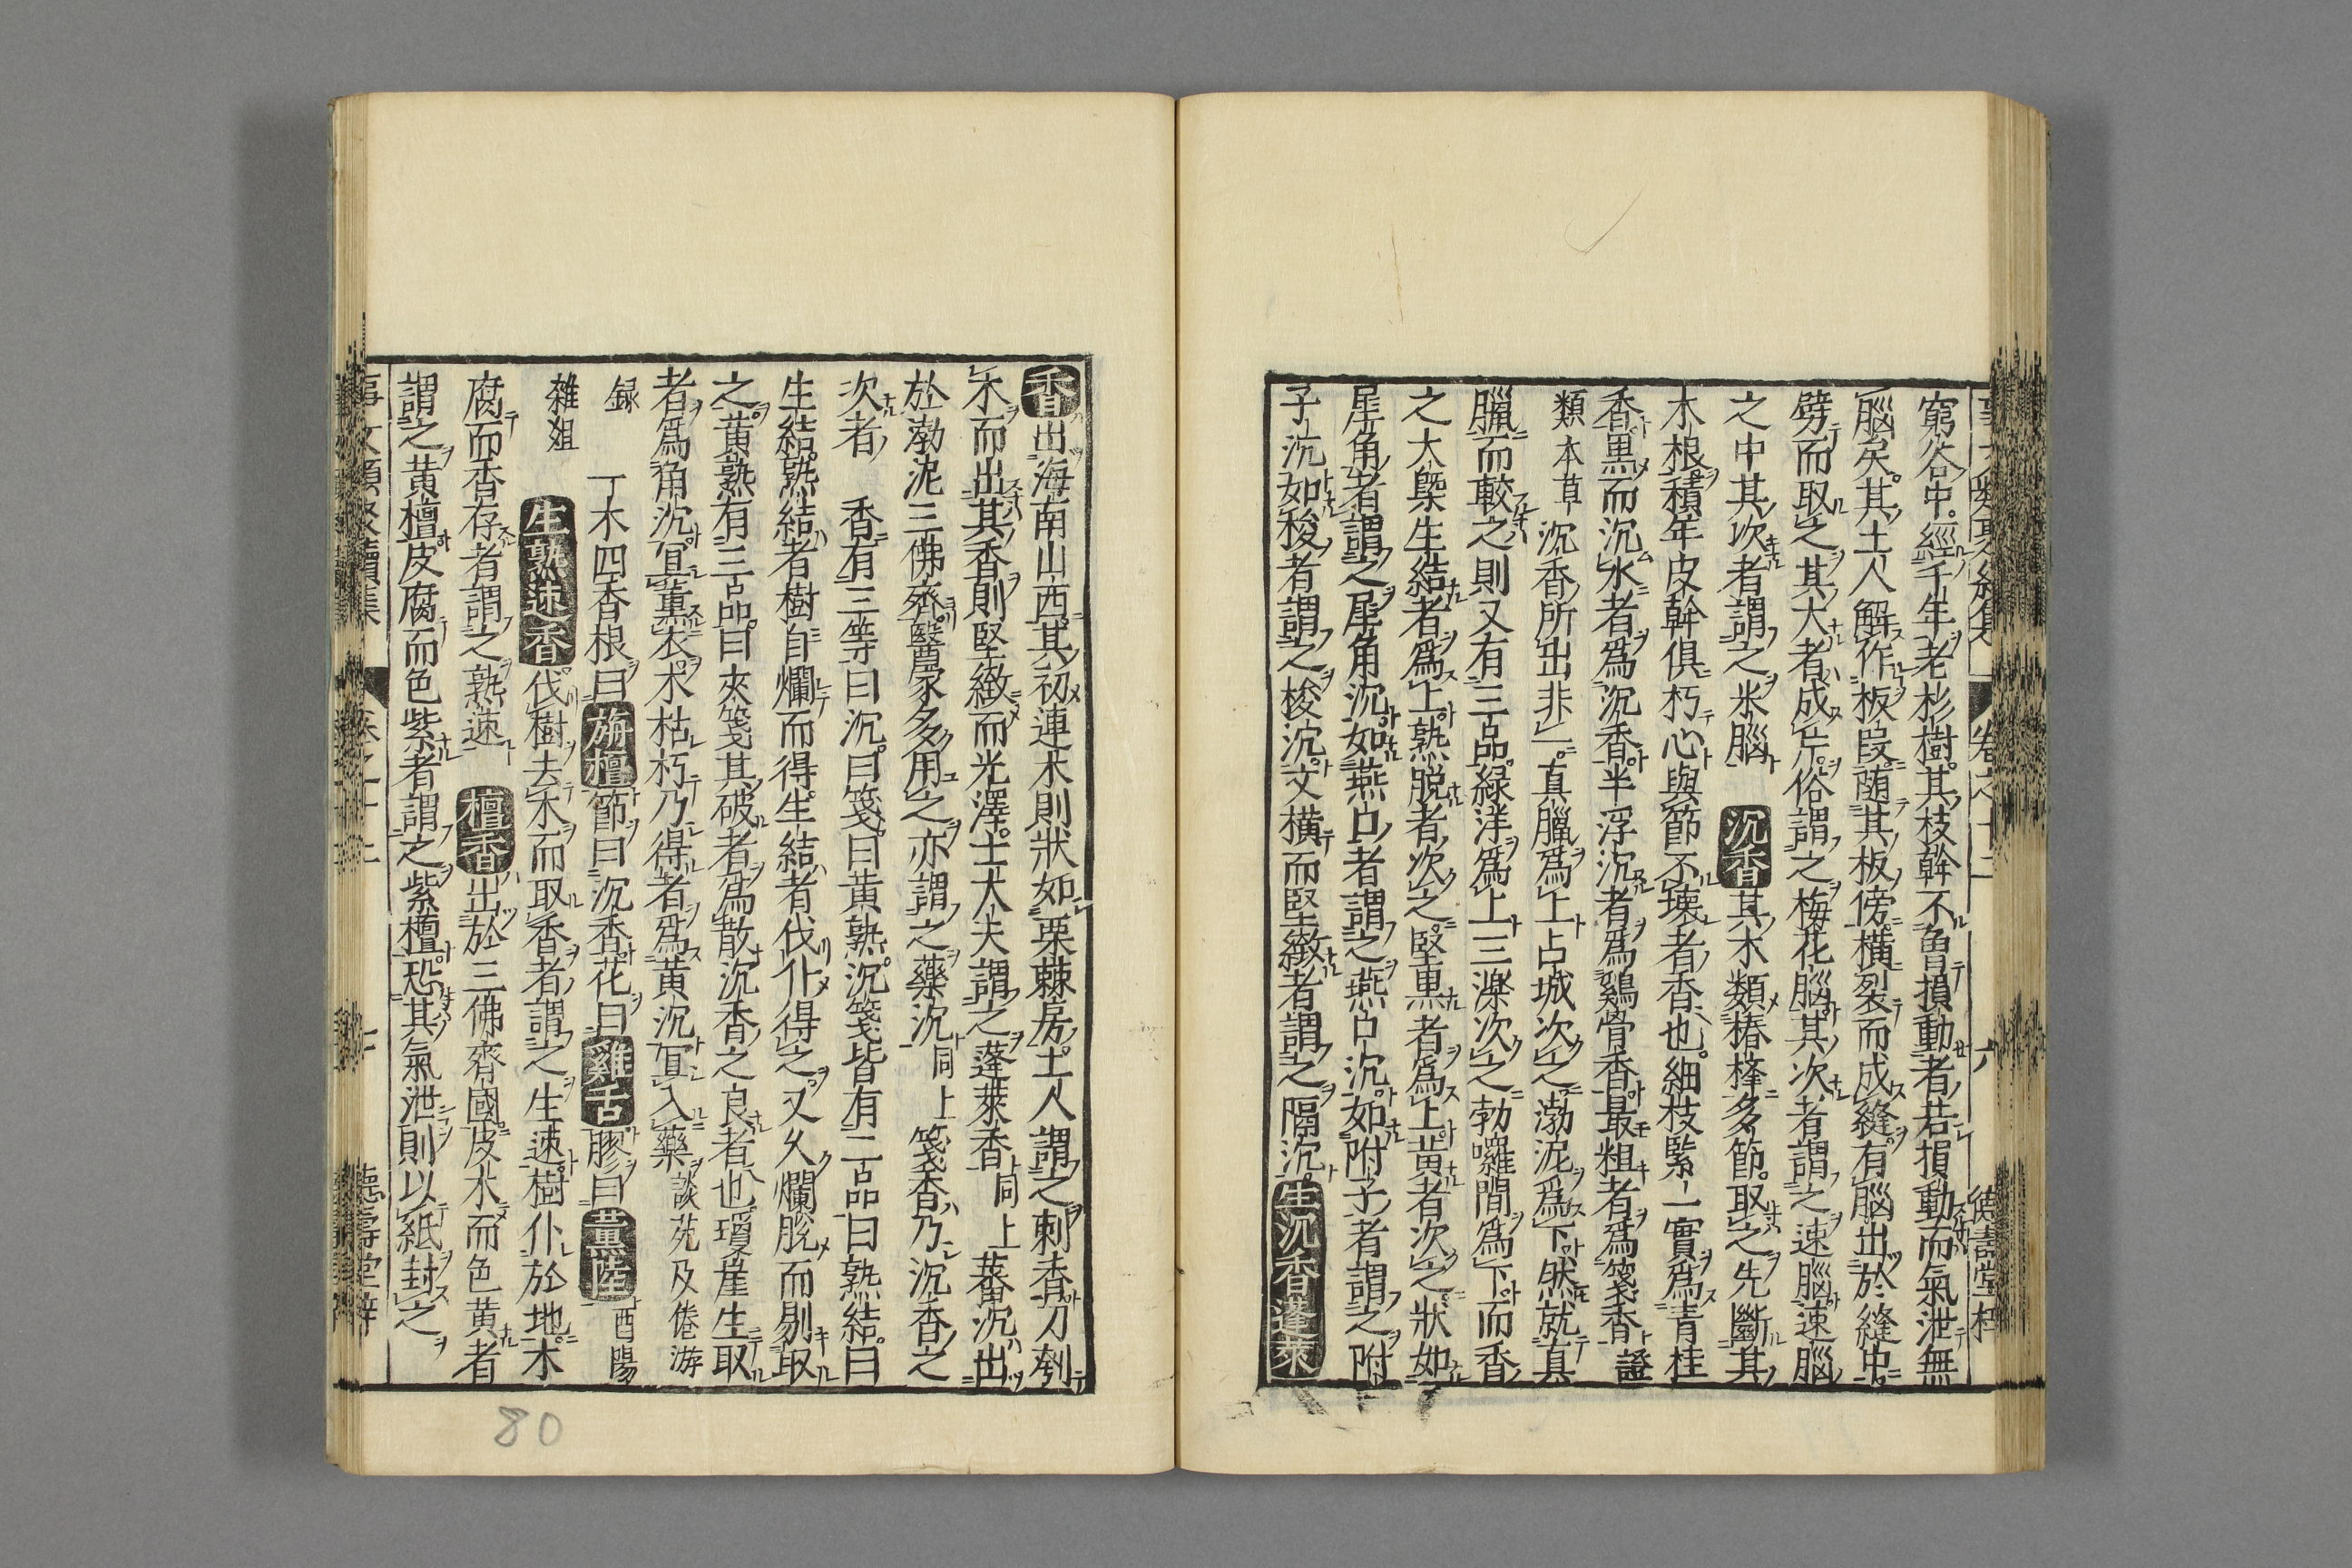 窮谷中經千年老杉樹其枝幹不曾損動者若損動而氣泄無
腦矣其土人解作板段隨其板傍橫裂而成縫有腦出於縫中
劈而取之其大者成片俗謂之梅花腦其次者謂之速腦速腦
之中其次者謂之米腦 沉香 其木類椿櫸多節取之先斷其
木根積年皮幹俱朽心與節不壞者香也細枝緊實爲青桂
香黒而沉水者爲沉香半浮沉者爲鷄骨香最粗者爲箋香 證
類本草 沉香所出非一真臘爲上占城次之渤泥爲下然就真
臘而較之則又有三品緑洋爲上三濼次之勃囉間爲下而香
之大槩生結者爲上熟脱者次之堅黒者爲上黄者次之狀如
犀角者謂之犀角沉如燕口者謂之燕口沉如附子者謂之附
子沉如梭者謂之梭沉文橫而堅緻者謂之隔沉 生沉香蓬萊
香 出海南山西其初連木則狀如栗棘房土人謂之刺香刀刳
木而出其香則堅緻而光澤士大夫謂之蓬萊香 同上 蕃沉出
於渤泥三佛齊醫家多用之亦謂之藥沉 同上 箋香乃沉香之
次者 香有三等曰沉曰箋曰黄熟沉箋皆有二品曰熟結曰
生結熟結者樹自爛而得生結者伐仆得之又久爛脱而剔取
之黄熟有三品曰夾箋其破者爲散沉香之良者也瓊崖生取
者爲角沉宜薰衣木枯朽乃得者爲黄沉宜入藥 談苑及倦游
録 一木四香根曰 旃檀 節曰沉香花曰 雞舌 膠曰 薫陸 酉陽
雜俎 生熟速香 伐樹去木而取香者謂之生速樹仆於地木
腐而香存者謂之熟速 檀香 出於三佛齊國皮木而色黄者
謂之黄檀皮腐而色紫者謂之紫檀恐其氣泄則以紙封之
80